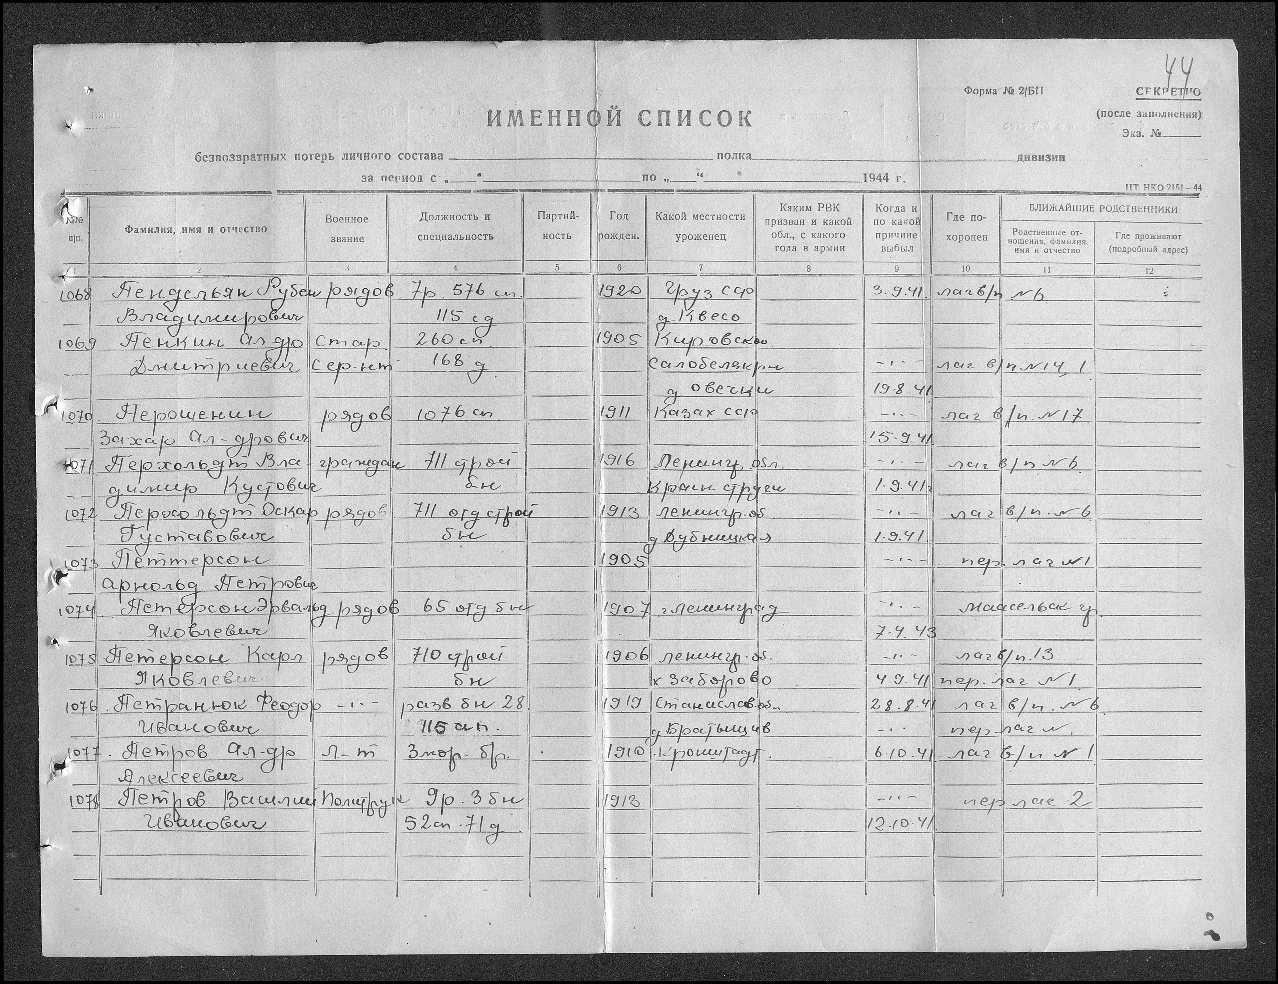 44
Форма № 2/БП
СЕКРЕТНО
(после заполнения)
Экз. №
ИМЕННОЙ СПИСОК
безвозвратных потерь личного состава полка дивизии
за период с „ “ по „ “ 1944 г.
ЦТ НКО 2151—44
№№ п/п.
Фамилия, имя и отчество
Военное звание
Должность и специальность
Партийность
Год рожден.
Какой местности уроженец
Каким РВК призван и какой обл., с какого года в армии
Когда и по какой причине выбыл
Где похоронен
БЛИЖАЙШИЕ РОДСТВЕННИКИ
Родственные отношения, фамилия, имя и отчество
Где проживают (подробный адрес)
2 3 4 5 6 7 8 9 10 11 12
1068 Пендельян Рубен рядов 7р. 576 сп. 1920 Груз сср 3.9.41. лаг в/п №6
Владимирович 115 сд д. Квесо
1069 Пенкин Ал-др Стар. 260 сп. 1905 Кировская
Дмитриевич Сер-нт 168 д -"- лаг в/п №14, 1
д Овечки 19.8.41
1070 Перошенин рядов 1076 сп 1911 Казах сср -"- лаг в/п. №17
Захар Ал-дрович 15.9.41
1071 Перхольдт Вла- граждан 711 строй 1916 Ленинг. обл. -"- лаг в/п №6
димир Кустович бн Красн струги 1.9.41г
1072 Перосольдт Оскар рядов 711 отд строй 1913 Ленингр. об -"- лаг в/п. №6
Густавович бн д Дубницкая 1.9.41.
1073 Петтерсон 1905 -"- пер. лаг №1
Арнольд Петрович
1074 Петерсон Эрвальд рядов 65 отд бн 1907 г Ленинград -"- Маасельск гр.
Яковлевич 7.4.43
1075 Петерсон Карл рядов 710 строй 1906 Ленингр. об. -"- лаг в/п. 13
Яковлевич бн к Заборово 4 9.41 пер. лаг №1
1076 Петранюк Феодор -"- разв бн 28. 1919 Станиславоб. 28.8.41 лаг в/п. №6
Иванович 115 сп. д Братышив -"- пер лаг №.
1077 Петров Ал-др Л-т 3 мор. бр. 1910 г. Кронштадт. 6.10.41 лаг в/п №1
Алексеевич
1078 Петров Василий Политрук 9р. 3 бн 1913 -"- пер лаг 2
Иванович 52 сп. 71 д 12.10.41